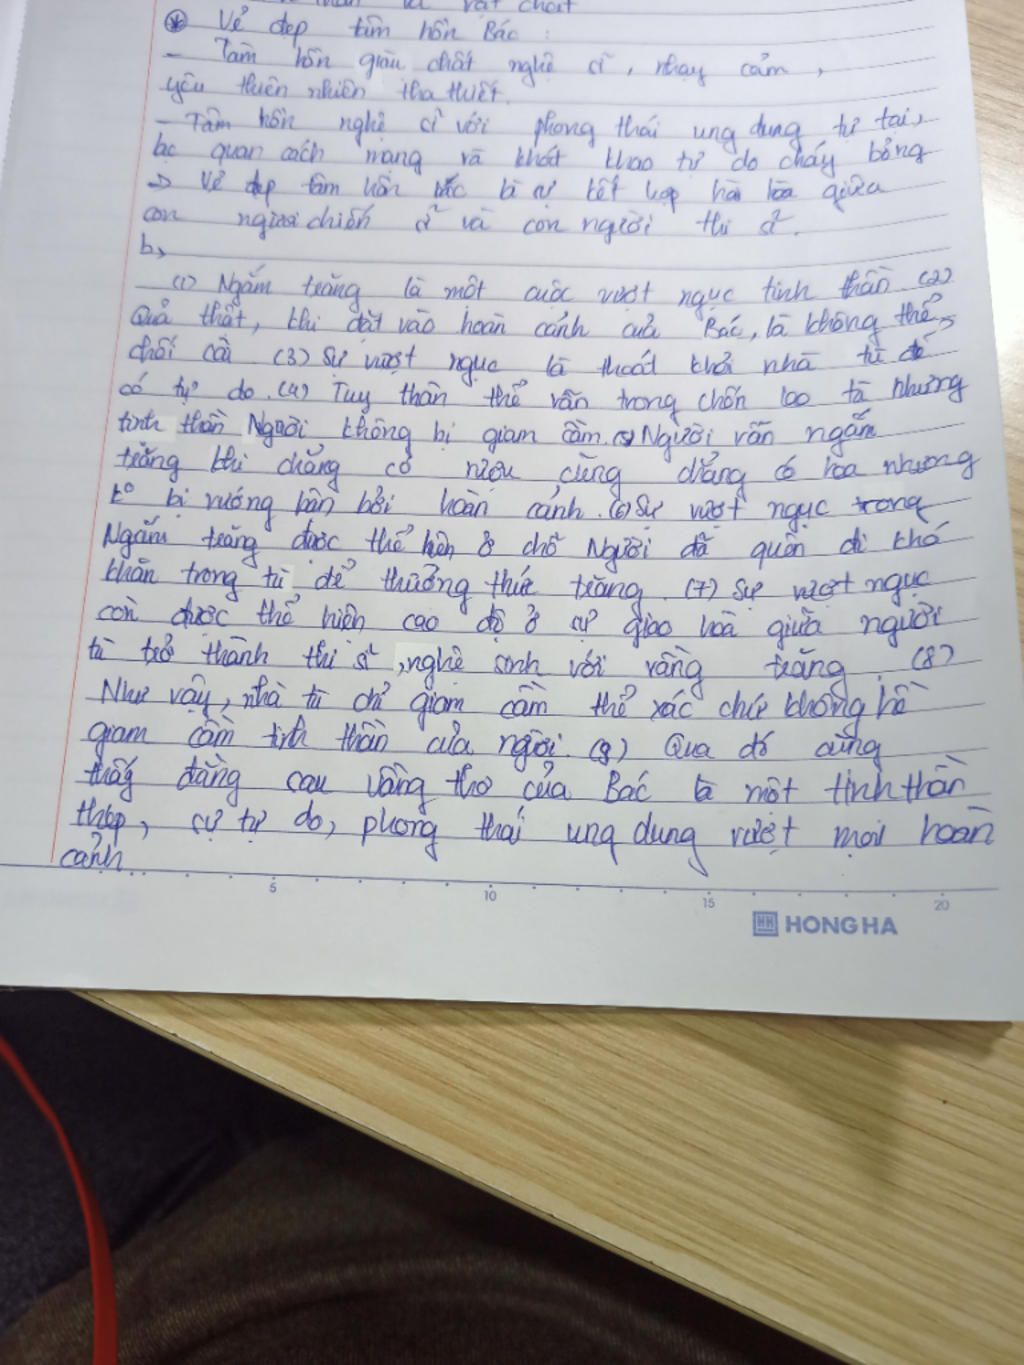 vật chất
* Vẻ đẹp tâm hồn Bác :
- Tâm hồn giàu chất nghệ sĩ, nhạy cảm,
yêu thiên nhiên tha thiết.
- Tâm hồn nghệ sĩ với phong thái ung dung tự tại,
lạc quan cách mạng và khát khao tự do cháy bỏng
-> Vẻ đẹp tâm hồn Bác là sự kết hợp hài hòa giữa
con người chiến sĩ và con người thi sĩ.
b,
(1) Ngắm trăng là một cuộc vượt ngục tinh thần (2)
Quả thật, khi đặt vào hoàn cảnh của Bác, là không thể
chối cãi (3) Sự vượt ngục là thoát khỏi nhà tù để
có tự do. (4) Tuy thân thể vẫn trong chốn lao tù nhưng
tinh thần Người không bị giam cầm. (5) Người vẫn ngắm
trăng khi chẳng có rượu cũng chẳng có hoa nhưng
ko bị vướng bận bởi hoàn cảnh. (6) Sự vượt ngục trong
Ngắm trăng được thể hiện ở chỗ Người đã quên đi khó
khăn trong tù để thưởng thức trăng. (7) Sự vượt ngục
còn được thể hiện cao độ ở sự giao hoà giữa người
tù trở thành thi sĩ, nghệ sinh với vầng trăng. (8)
Như vậy, nhà tù chỉ giam cầm thể xác chứ không hề
giam cầm tinh thần của người. (9) Qua đó cũng
thấy đằng sau vầng thơ của Bác là một tinh thần
thép, sự tự do, phong thái ung dung vượt mọi hoàn
cảnh
5 10 15 20
HH HONG HA